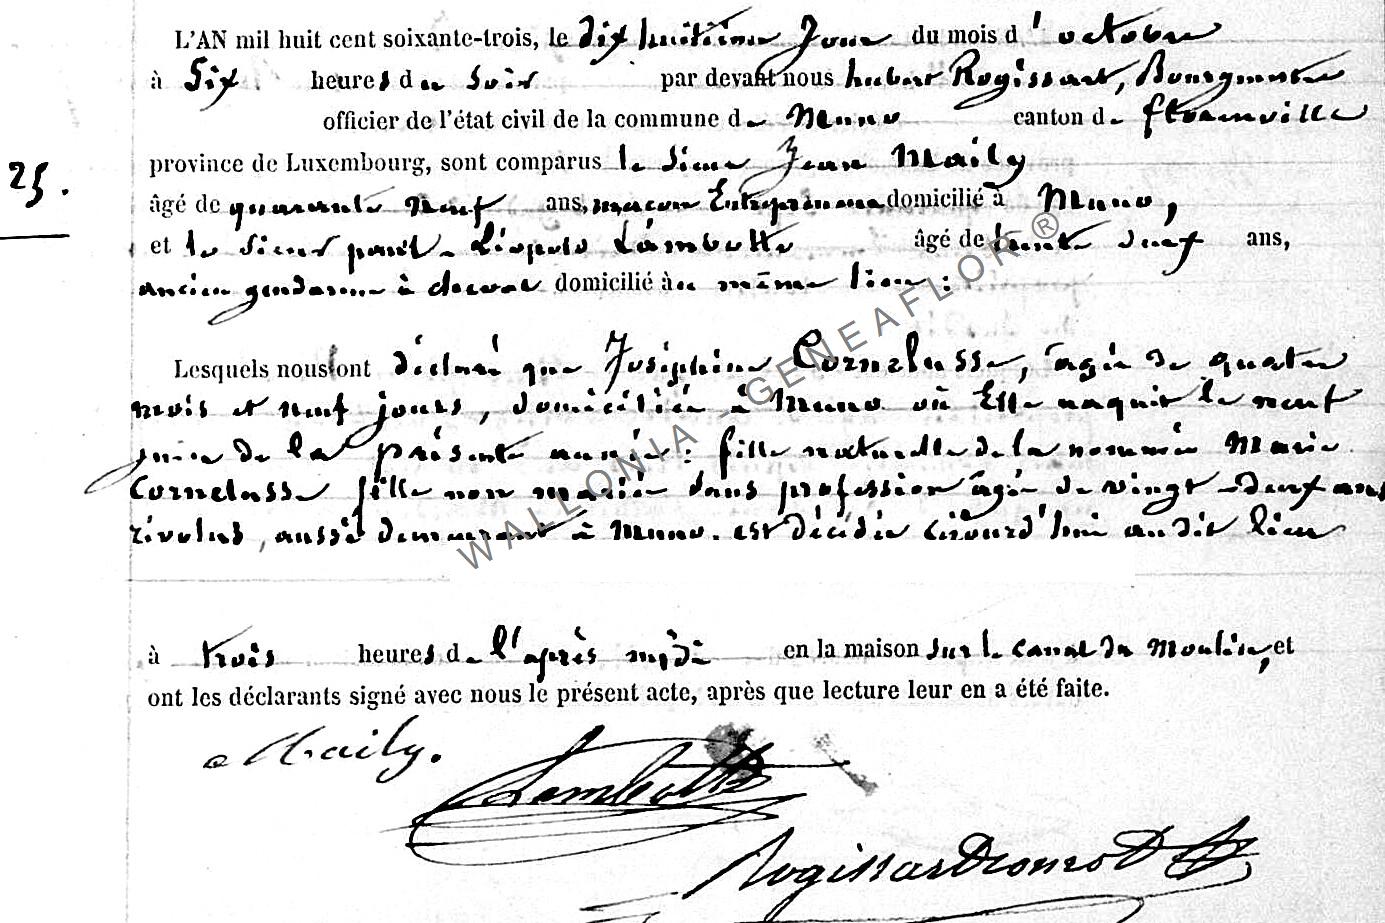 L'AN mil huit cent soixante-trois, le dix huitième Jour du mois d'octobre
à Six heures du Soir par devant nous hubert Rogissart, Bourgmestre
officier de l'état civil de la commune de Muno canton de florenville
province de Luxembourg, sont comparus le Sieur Jean Maily
âgé de quarante neuf ans, maçon Entrepreneur domicilié à Muno,
25.
et le Sieur Léopold Lambotte âgé de trente neuf ans,
ancien gendarme à cheval domicilié au même lieu :
Lesquels nous ont déclaré que Joséphine Cornelusse, âgée de quatre
mois et neuf jours, domiciliée à Muno où Elle naquit le neuf
juin de la présente année : fille naturelle de la nommée Marie
Cornelusse fille non mariée sans profession âgée de vingt-deux ans
révolus, aussi demeurant à Muno. est décédée cejourd'hui audit lieu
à trois heures de l'après midi en la maison sur le canal du Moulin, et
ont les déclarants signé avec nous le présent acte, après que lecture leur en a été faite.
Maily.
Lambotte
WALLONIA - GENEAFLOR ®